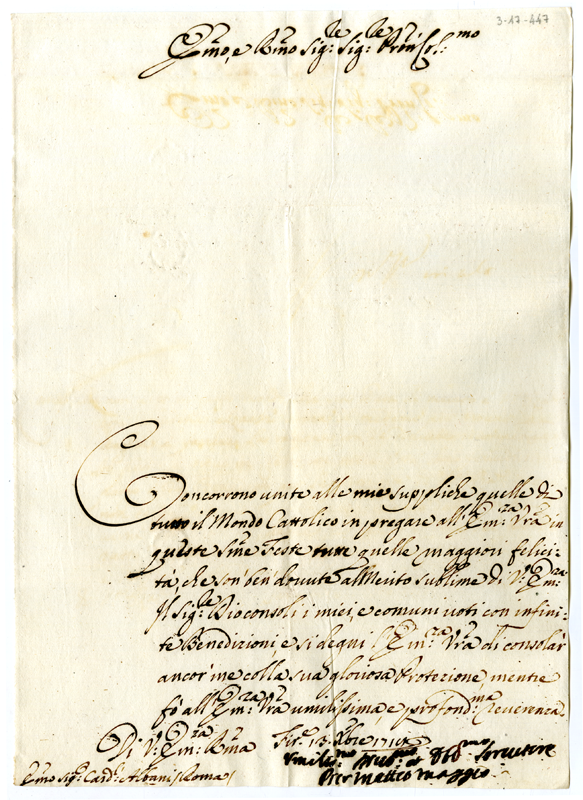 3-17-447
Em̃o, e Rm̃o Sig:re Sig:re Prõn Col:mo
Concorrono unite alle mie suppliche quelle di
tutto il Mondo Cattolico in pregare all'Em:za Vrã in
queste Sm̃e Feste tutte quelle maggiori felici-
tà, che son' ben' dovute al Merito sublime di V:ra Em:za
Il Sig:re Dio consoli i miei, e comuni voti con infini-
te Benedizioni, e si degni l'Em:za Vrã di consolar
ancor' me colla sua gloriosa Protezione, mentre
fò all'Em:za Vrã umilissima, e profond:ma Reverenza.
Di V:ra Em:za Rm̃a
Fir:e 13. Xbre
Umiliss:mo Dev:mo et Obb:mo Servitore
Pier Matteo Maggio
Em̃o Sig:r Card:l Albani (Roma)